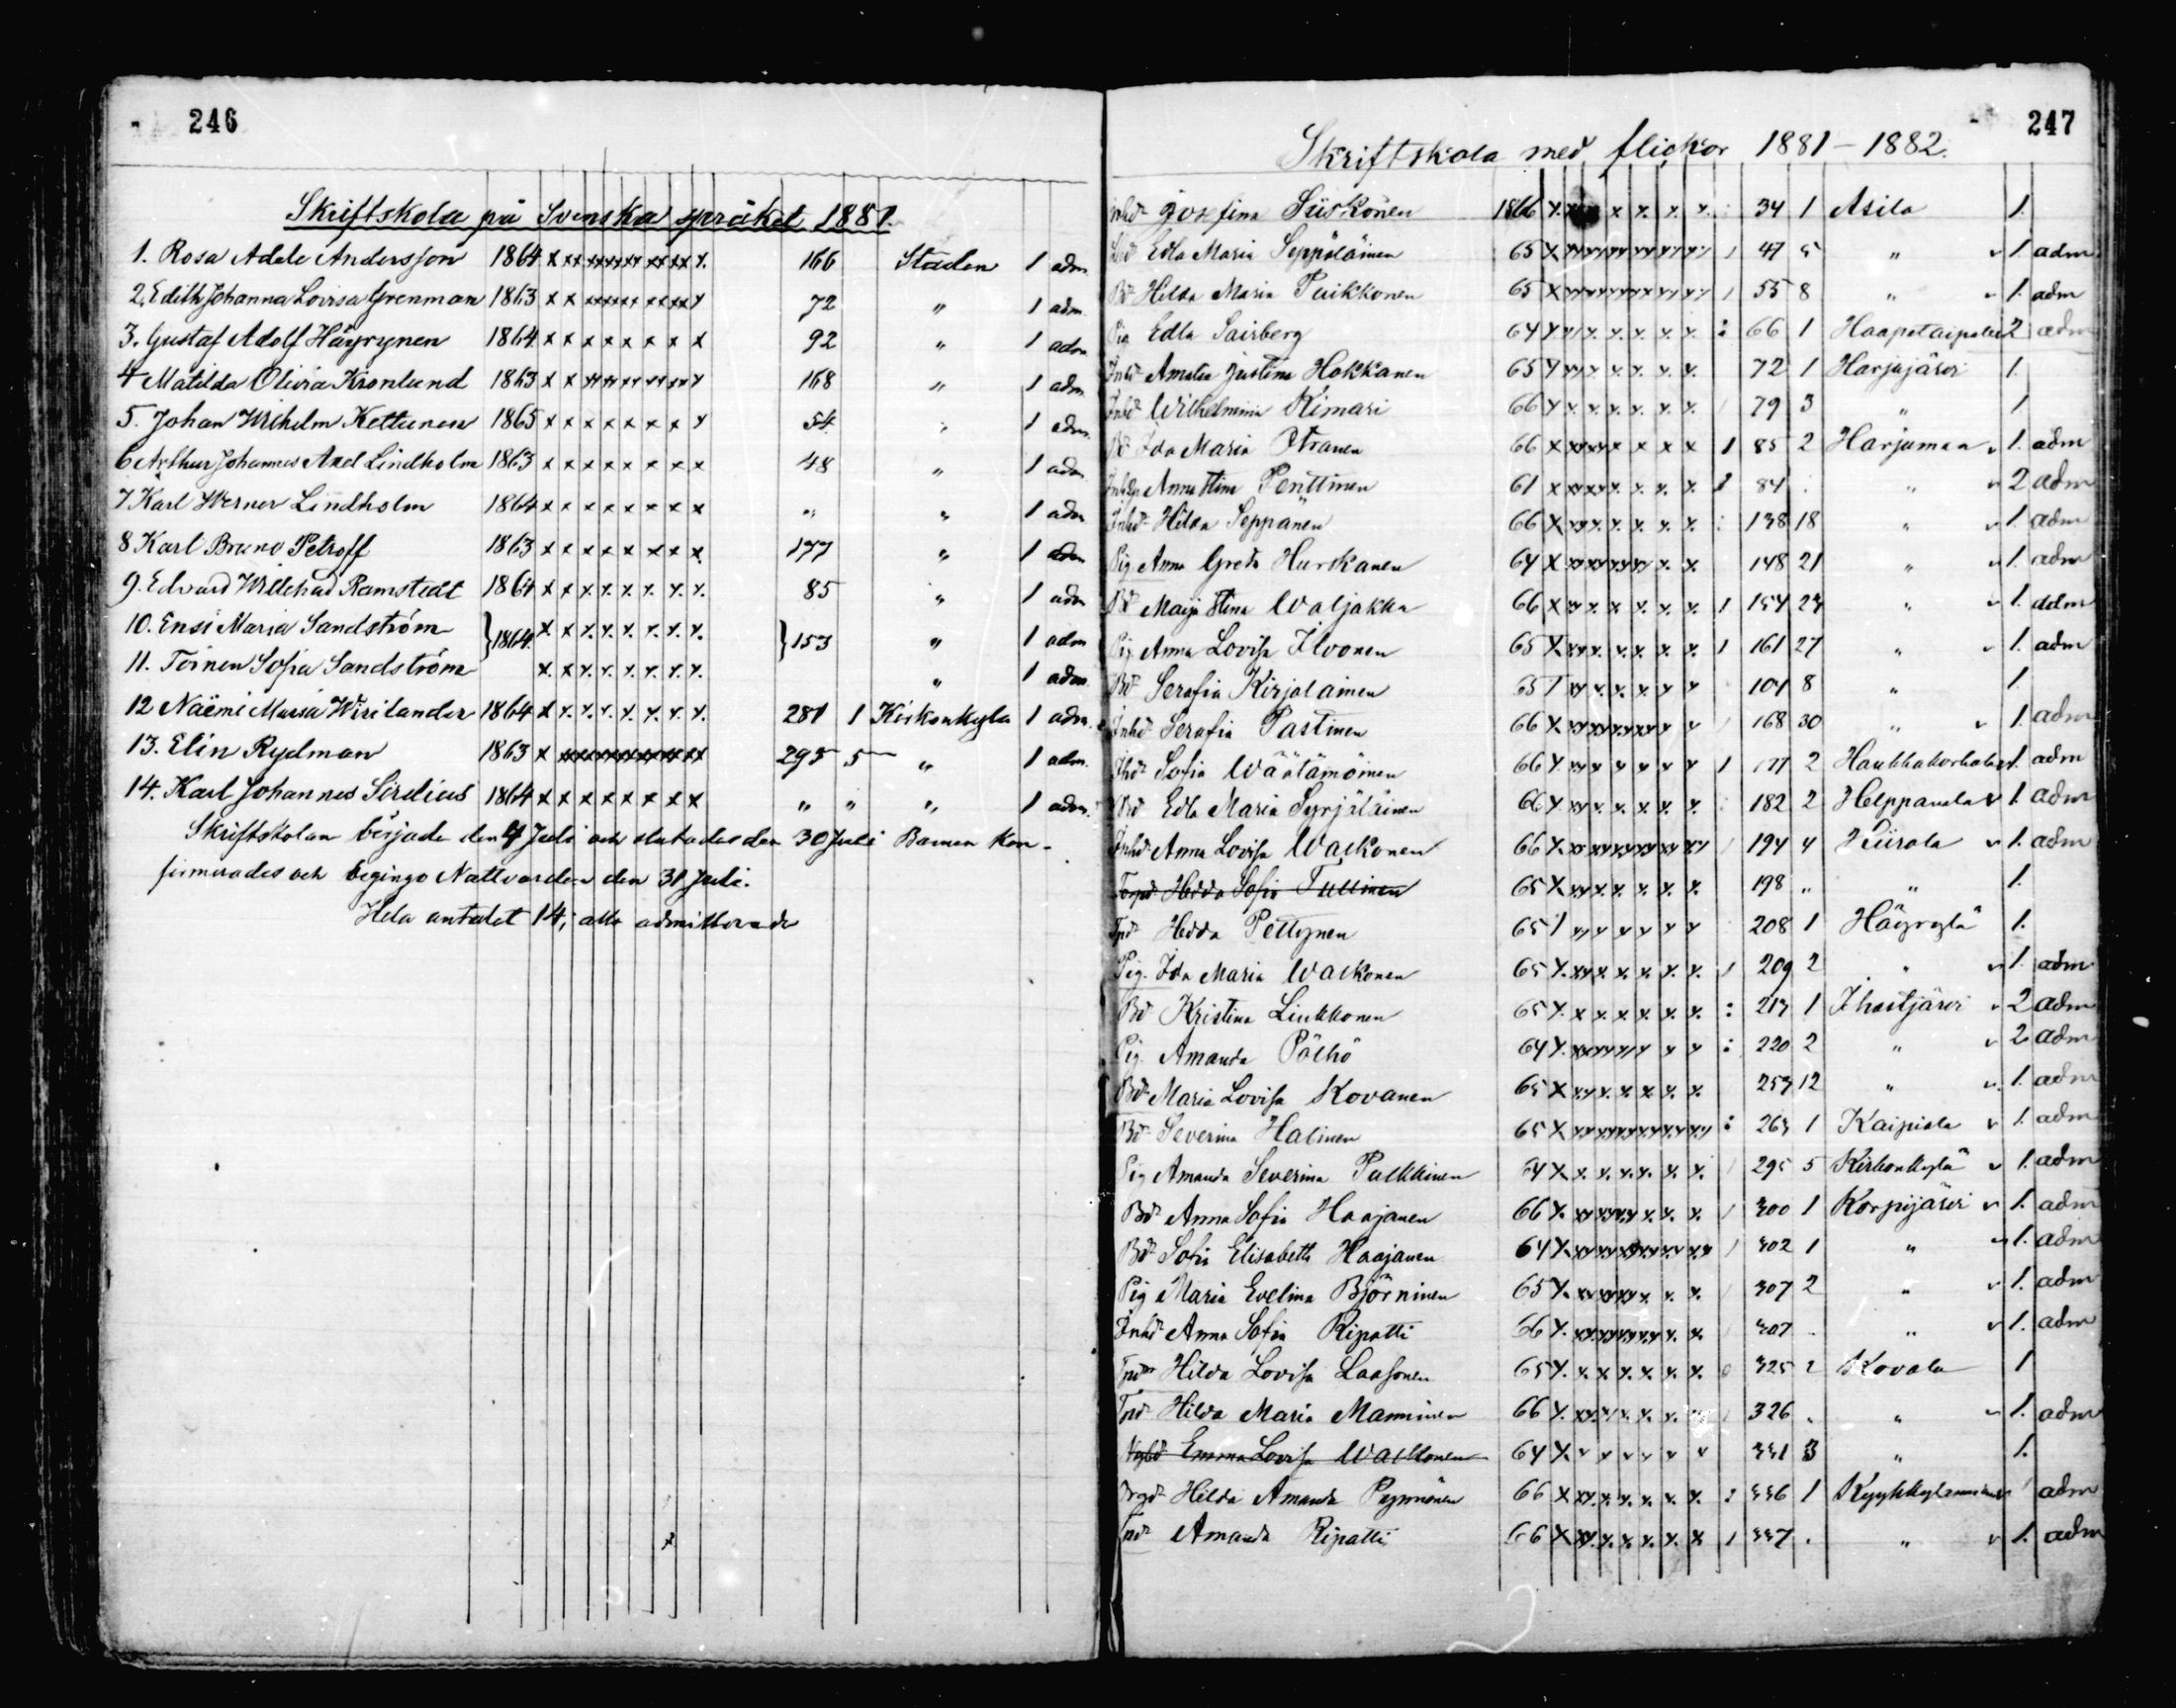 246
Skriftskola på Svenska språket 1881.
1. Rosa Adele Andersson 1864 x xx xx xx xx xx xx x 166 Staden 1 adm.
2. Edith Johanna Lovisa Grenman 1863 x x xx xx xx xx xx x 72 " 1 adm.
3. Gustaf Adolf Häyrynen 1864 x x x x x x x x 92 " 1 adm
4 Matilda Olivia Kronlund 1863 x x xx xx xx xx xx x 168 " 1 adm
5. Johan Wilhelm Kettunen 1865 x x x x x x x x 54 " 1 adm.
6 Arthur Johannes Axel Lindholm 1863 x x x x x x x x 48 " 1 adm
7 Karl Werner Lindholm 1864 x x x x x x x x " " 1 adm
8 Karl Bruno Petroff 1863 x x x x x x x x 177 " 1 adm
9. Edvard Willehad Ramstedt 1864 x x x x x x x x 85 " 1 adm
10. Ensi Maria Sandström } 1864 x x x x x x x x } 153 " 1 adm
11. Toinen Sofia Sandström x x x x x x x x " 1 adm
12 Naëmi Maria 1864 x x x x x x x x 281 1 Kirkonkyla 1 adm.
13. Elin Rydman 1863 x xx xx xx xx xx xx xx 295 5 " 1 adm.
14. Karl Johannes Sirelius 1864 x x x x x x x x " " " 1 adm.
Skriftskolan började den 4 Juli och slutades den 30 Juli Barnen kon-
firmerades och begingo Nattvarden den 31 Juli.
Hela antalet 14, alla admitterade
247
Skriftskola med flickor 1881-1882.
Inhd Josefina Siiskonen 1866 x x x x x x 34 1 Asila 1.
Edla Maria Seppäläinen 65 x xx xx xx xx xx xx 1 47 5 " v 1. adm
Bd Hilda Maria Puikkonen 65 x xx xx xx xx xx xx 1 55 8 " v 1. adm
Pig Edla Sairberg 64 x xx x x x x x : 66 1 Haapataipale 2 adm
Inhd Amalia Justina Hokkanen 65 x xx x x x x x 72 1 Harjujärvi 1.
Inhd Wilhelmina Kimari 66 x x x x x x x 79 3 " 1
Bd Ida Maria Otranen 66 x xx xx x x x x 1 85 2 Harjumaa v 1. adm
Anna Stina Penttinen 61 x xx xx x x x x 84 " v 2 adm
Inhd Hilda Seppänen 66 x xx x x x x x : 138 18 " v 1. adm
Pig Anna Greta Hurskanen 64 x xx xx xx xx x x 148 21 " v 1. adm
Bd Maija Stina Waljakka 66 x xx x x x x x 1 154 24 " v 1. adm
Pig Anna Lovisa Ilvonen 65 x xx x x x x x 1 161 27 " v 1. adm
Bd Serafia Kirjalainen 65 1 xx x x x x x 104 8 " 1.
Inhd Serafia Pastinen 66 x xx xx xx xx x x 168 30 " v 1. adm
Inhd Sofia Wäätämöinen 66 x xx x x x x x 1 177 2 v 1. adm
Edla Maria Syrjäläinen 66 x xx x x x x x : 182 2 Helppanala v 1 adm
Inhd Anna Lovisa Walkonen 66 x xx xx xx xx xx xx 194 4 Hiirola v 1. adm
Hedda Sofia Tullinen 65 x xx x x x x x 198 " " 1.
Hedda Pettynen 65 1 xx x x x x x 208 1 Häyrylä 1.
Pig. Ida Maria Walkonen 65 x xx x x x x x 1 209 2 " v 1. adm
Bd Kristina Liukkonen 65 x x x x x x x : 213 1 Ihastjärvi v 2 adm
Pig. Amanda Pöllö 64 x xx xx xx x x x : 220 2 " v 2 adm
Bd Maria Lovisa Kovanen 65 x xx x x x x x 253 12 " v 1. adm
Bd Severina Halinen 65 x xx xx xx xx xx xx : 263 1 Kaipiala v 1. adm
Pig Amanda Severina Pulkkinen 64 x x x x x x x 295 5 Kirkonkylä v 1. adm
Bd Anna Sofia Haajanen 66 x xx xx xx x x x 1 300 1 Korpijärvi v 1. adm
Bd Sofia Elisabeth Haajanen 64 x xx xx xx xx xx xx 1 302 1 " v 1. adm
Pig Maria Evelina Björninen 65 x xx xx xx x x x 307 2 " v 1. adm
Inhd Anna Sofia Ripatti 66 x xx xx xx xx x x 307 " v 1. adm
Hilda Lovisa Laasonen 65 x x x x x x x 0 325 2 Kovala 1
Hilda Maria Manninen 66 x xx x x x x x 326 " " v 1. adm
Emma Lovisa Walkonen 64 x x x x x x x 331 3 " 1.
Hilda Amanda Pynnönen 66 x xx x x x x x : 336 1 v 1 adm
Amanda Ripatti 66 x xx x x x x x 1 337 " v 1. adm